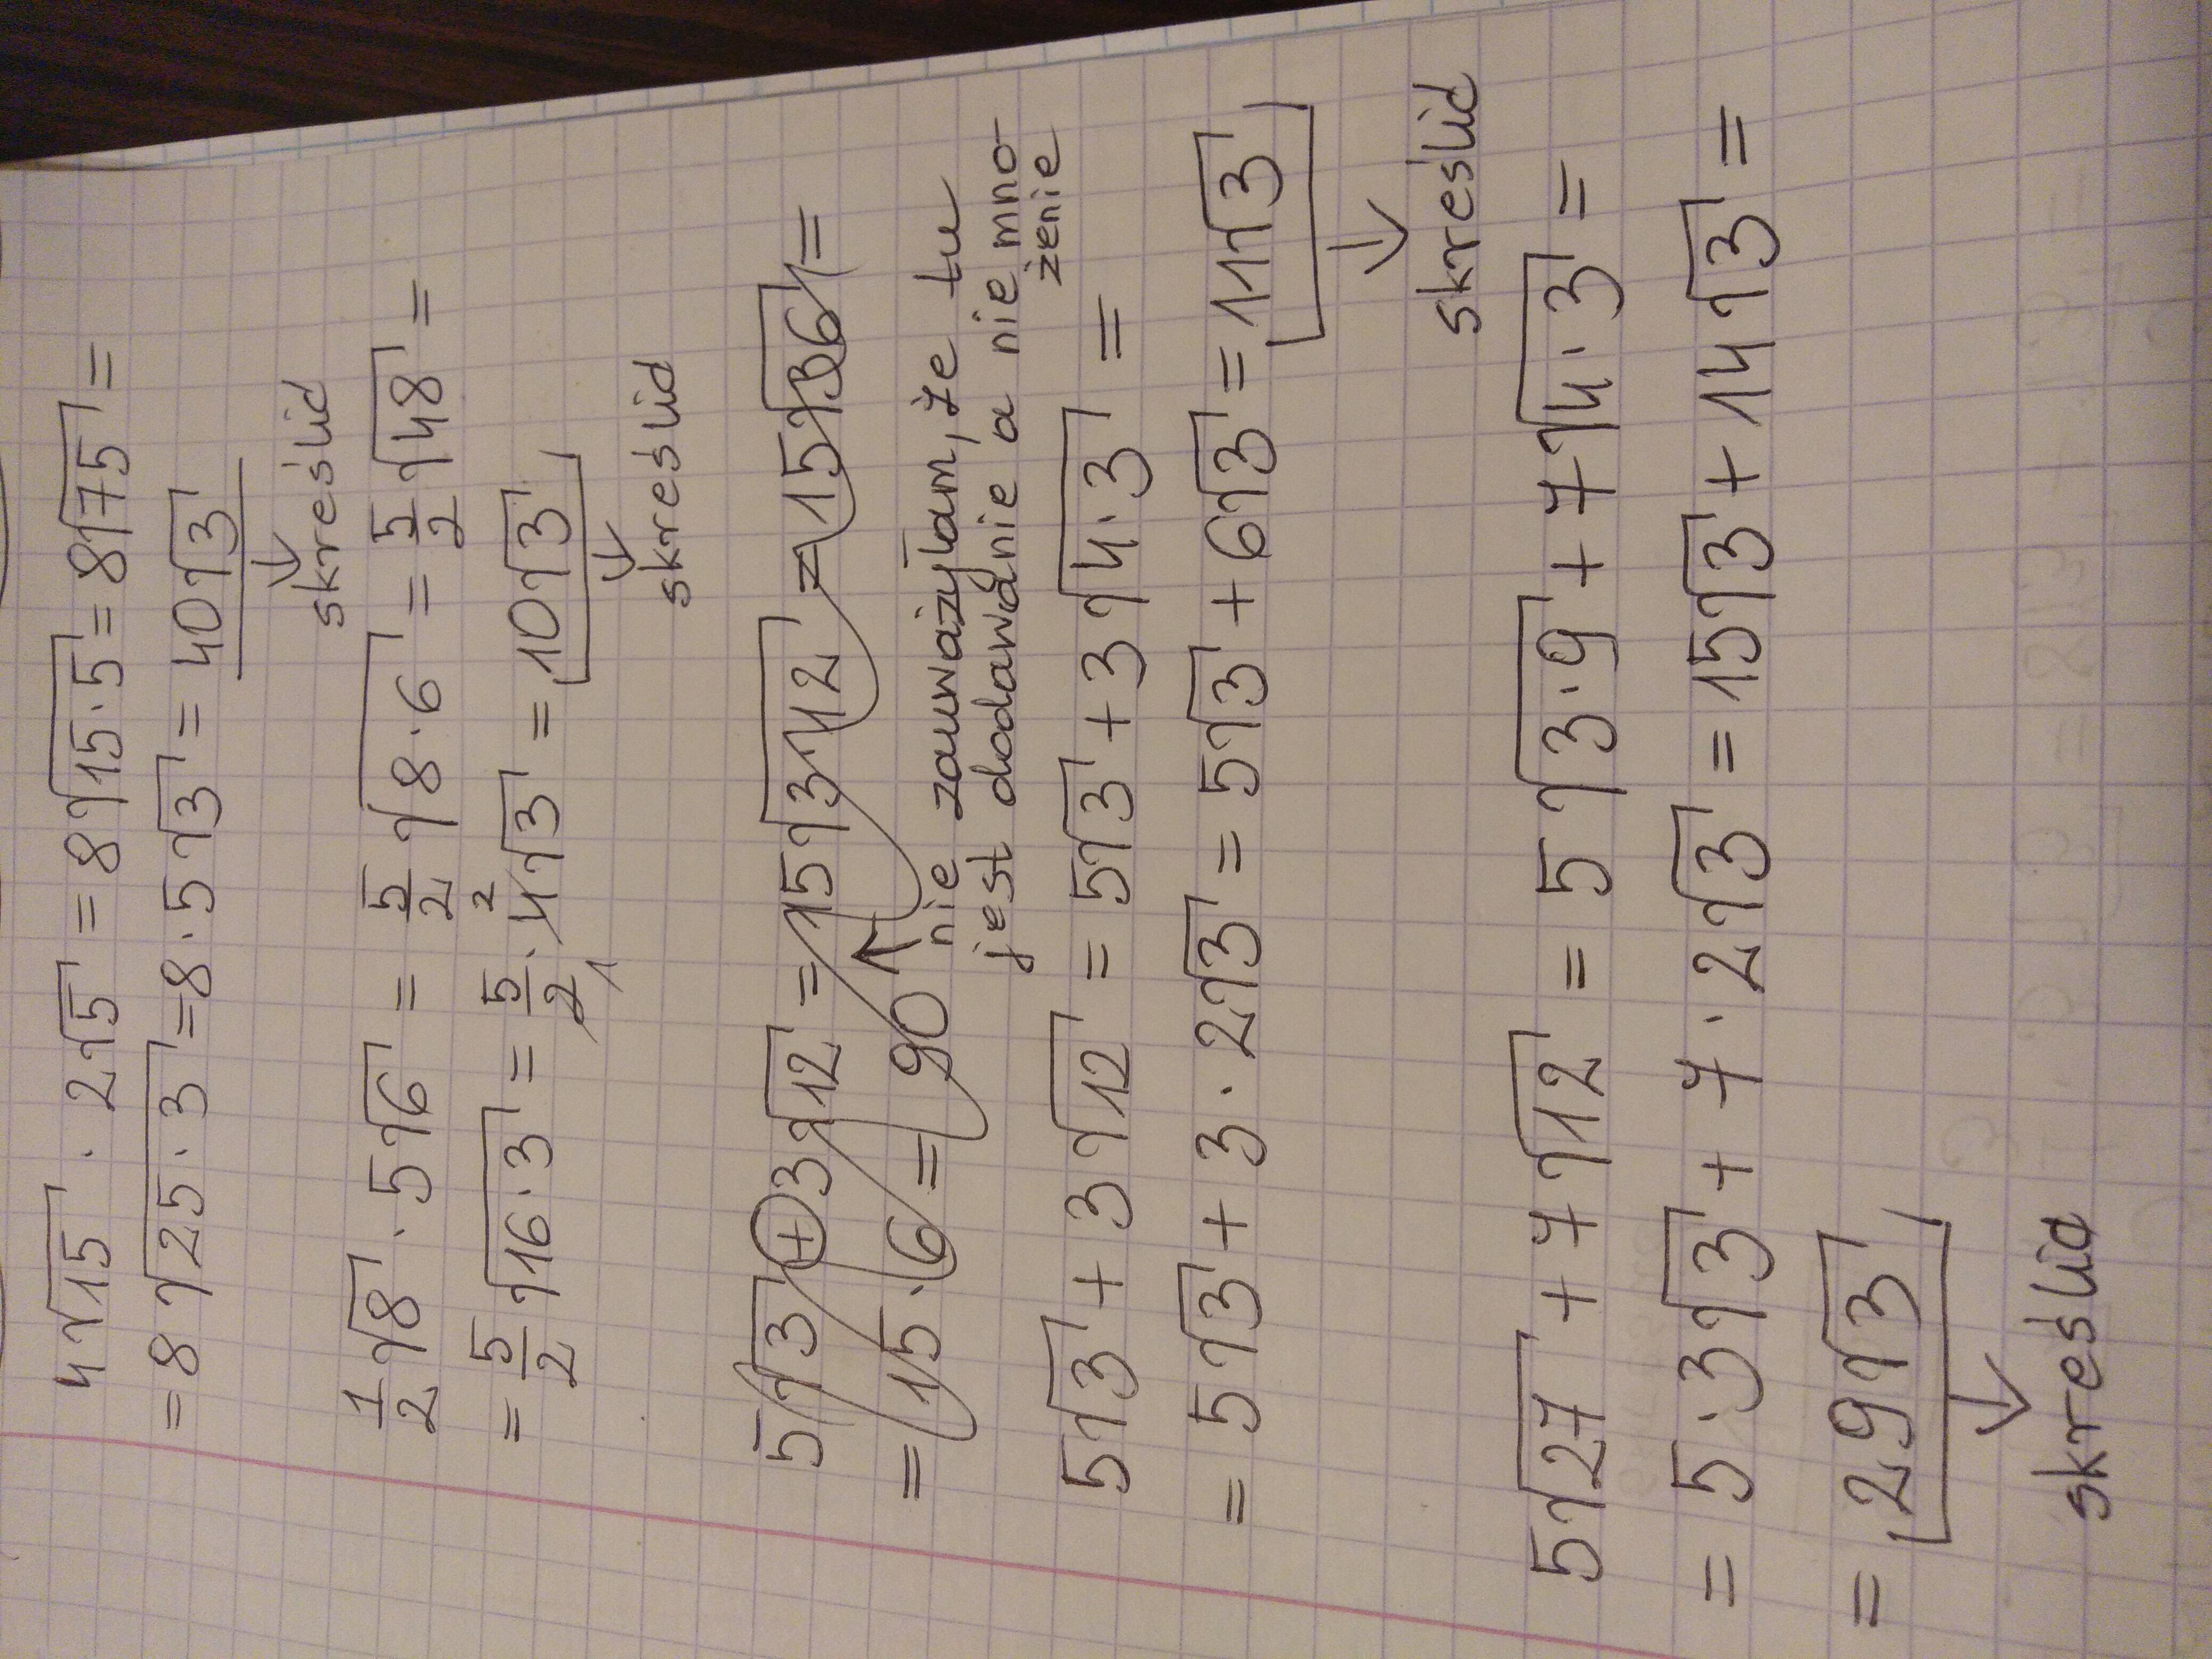 4√15 · 2√5 = 8√15·5 = 8√75 =
= 8√25·3 = 8·5√3 = 40√3
↓
skreślid
1/2√8 · 5√6 = 5/2√8·6 = 5/2√48 =
= 5/2√16·3 = 5/2·4√3 = 10√3
2
1
↓
skreślid
5√3 + 3√12 = 15√3·12 = 15√36 =
= 15·6 = 90 ↑
nie zauważyłam, że tu
jest dodawanie a nie mno-
żenie
5√3 + 3√12 = 5√3 + 3√4·3 =
= 5√3 + 3·2√3 = 5√3 + 6√3 = 11√3
↓
skreślid
5√27 + 7√12 = 5√3·9 + 7√4·3 =
= 5·3√3 + 7·2√3 = 15√3 + 14√3 =
= 29√3
↓
skreślid